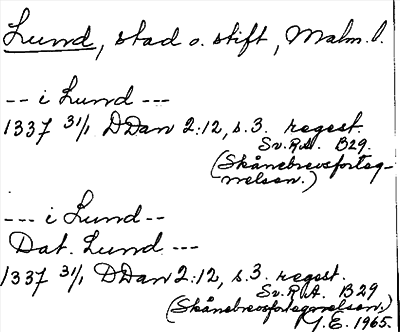 Lund, stad o. stift, Malm. l.
-- i Lund ---
1337 31/1 DDan 2:12, s. 3. regest.
Sv.R.A. B29.
(Skånebrevsforteg-
nelsen.)
--- i Lund --
Dat. Lund ---
1337 31/1 DDan 2:12, s. 3. regest.
Sv.R.A. B29
(Skånebrevsfortegnelsen.)
M.E. 1965.